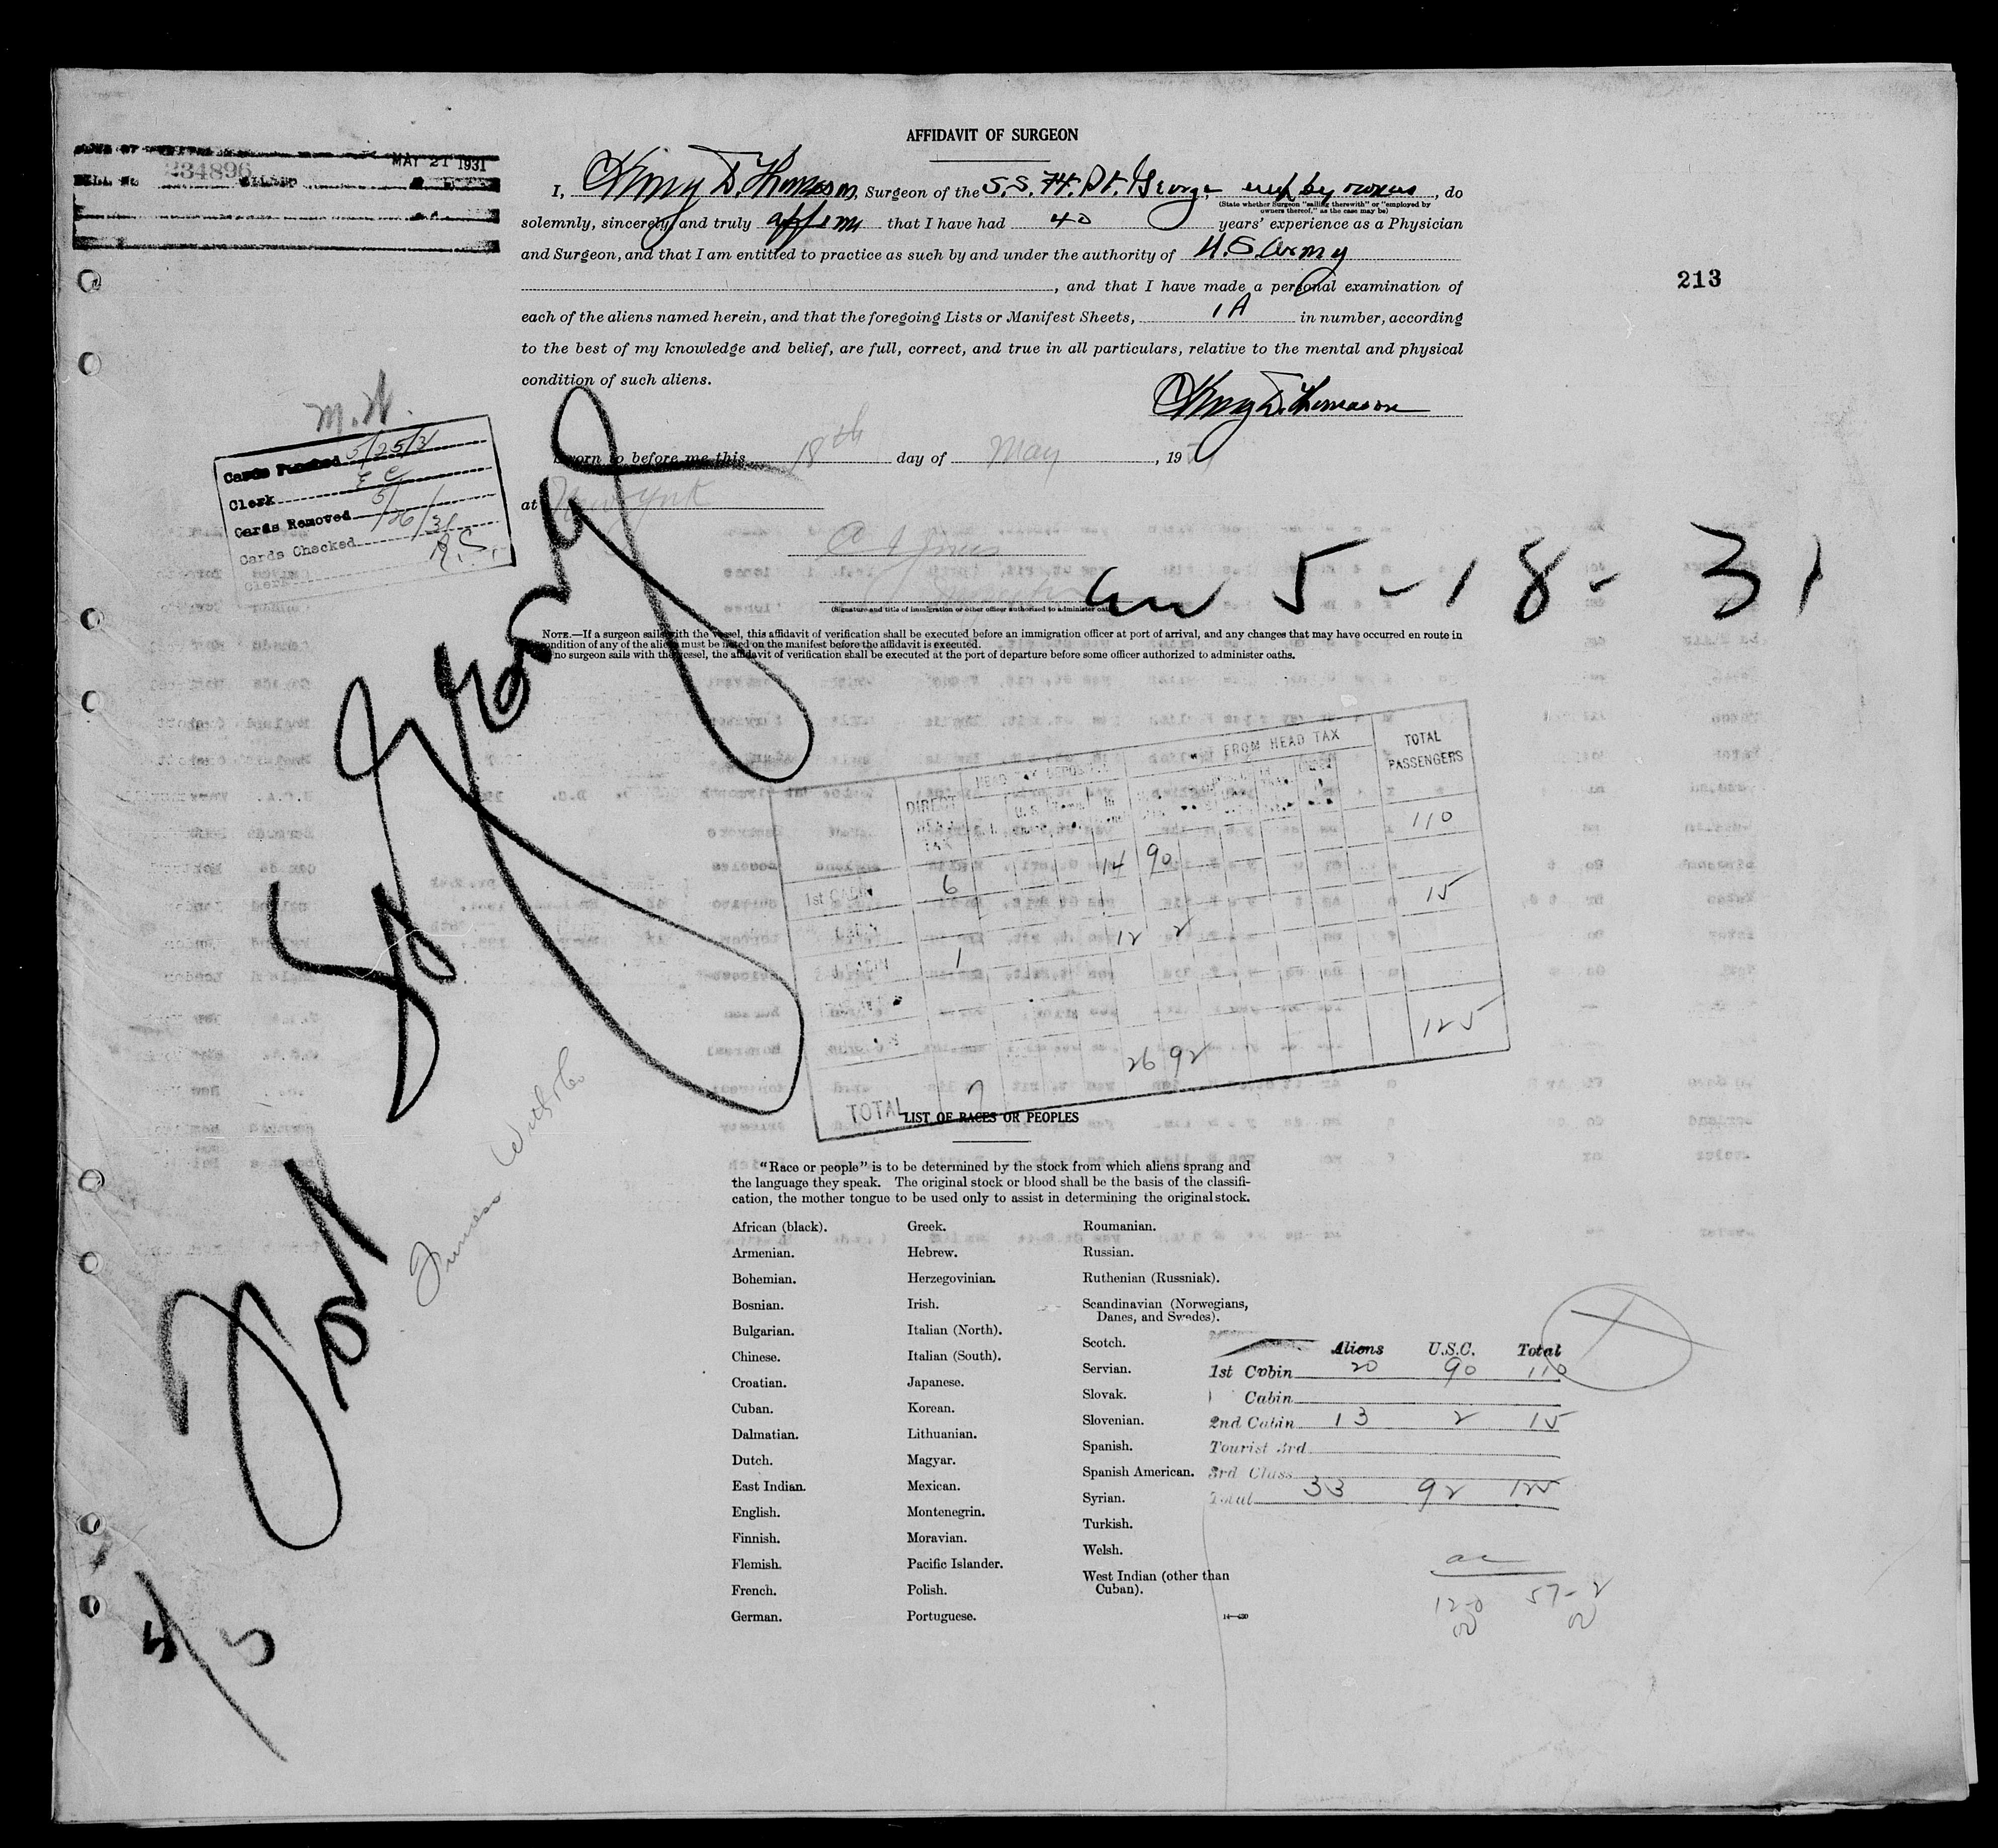 AFFIDAVIT OF SURGEON
MAY 21 1931
234896
I, Henry D. Thomason, Surgeon of the S.S. Ft. St. George, emp by owners, do
(State whether Surgeon "sailing therewith" or "employed by
owners thereof," as the case may be)
solemnly, sincerely, and truly affirm that I have had 40 years' experience as a Physician
and Surgeon, and that I am entitled to practice as such by and under the authority of U.S. Army
, and that I have made a personal examination of
each of the aliens named herein, and that the foregoing Lists or Manifest Sheets, 1A in number, according
to the best of my knowledge and belief, are full, correct, and true in all particulars, relative to the mental and physical
condition of such aliens.
213
Henry D. Thomason
Sworn to before me this 18th day of May, 19
at New York
(Signature and title of immigration or other officer authorized to administer oaths)
M.N.
Cards Punched 5/25/31
Clerk E C
Cards Removed 5/26/31
Cards Checked R.S.
Clerk
5-18-31
NOTE.—If a surgeon sails with the vessel, this affidavit of verification shall be executed before an immigration officer at port of arrival, and any changes that may have occurred en route in
condition of any of the aliens must be noted on the manifest before the affidavit is executed.
no surgeon sails with the vessel, the affidavit of verification shall be executed at the port of departure before some officer authorized to administer oaths.
Fort St George
Furness Withy
5/5
HEAD TAX DEPOSIT FROM HEAD TAX TOTAL PASSENGERS
DIRECT HEAD TAX
1st CABIN 6 14 90 110
CABIN 1 12 2 15
TOTAL 7 26 92 125
LIST OF RACES OR PEOPLES
"Race or people" is to be determined by the stock from which aliens sprang and
the language they speak. The original stock or blood shall be the basis of the classifi-
cation, the mother tongue to be used only to assist in determining the original stock.
African (black).
Armenian.
Bohemian.
Bosnian.
Bulgarian.
Chinese.
Croatian.
Cuban.
Dalmatian.
Dutch.
East Indian.
English.
Finnish.
Flemish.
French.
German.
Greek.
Hebrew.
Herzegovinian.
Irish.
Italian (North).
Italian (South).
Japanese.
Korean.
Lithuanian.
Magyar.
Mexican.
Montenegrin.
Moravian.
Pacific Islander.
Polish.
Portuguese.
Roumanian.
Russian.
Ruthenian (Russniak).
Scandinavian (Norwegians,
Danes, and Swedes).
Scotch.
Servian.
Slovak.
Slovenian.
Spanish.
Spanish American.
Syrian.
Turkish.
Welsh.
West Indian (other than
Cuban).
Aliens U.S.C. Total
1st Cabin 20 90 110
Cabin
2nd Cabin 13 2 15
Tourist 3rd
3rd Class
Total 33 92 125
12-0 57-2